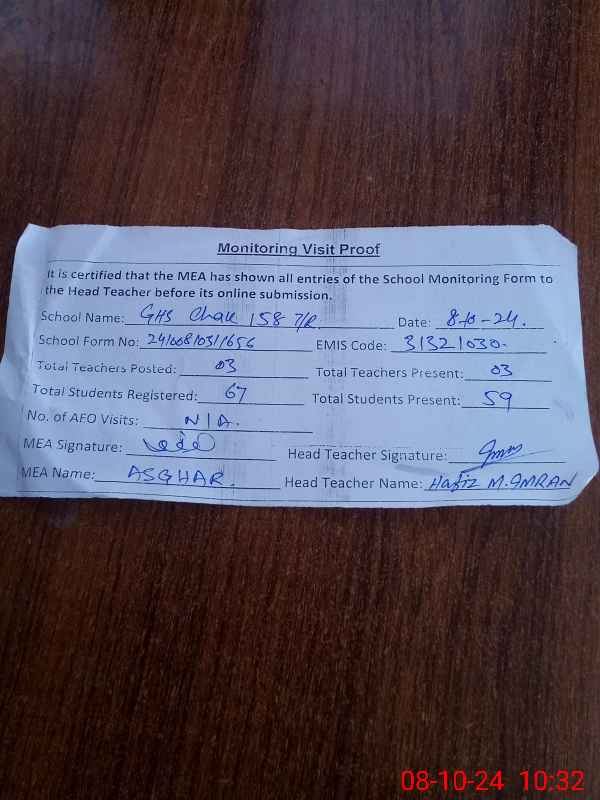 Monitoring Visit Proof
It is certified that the MEA has shown all entries of the School Monitoring Form to
the Head Teacher before its online submission.
School Name: GHS Chak 158 7/R Date: 8-10-24.
School Form No: 241008/031/1656 EMIS Code: 31321030.
Total Teachers Posted: 03 Total Teachers Present: 03
Total Students Registered: 67 Total Students Present: 59
No. of AFO Visits: N/A.
MEA Signature: Head Teacher Signature:
MEA Name: ASGHAR. Head Teacher Name: Hafiz M.IMRAN
08-10-24 10:32